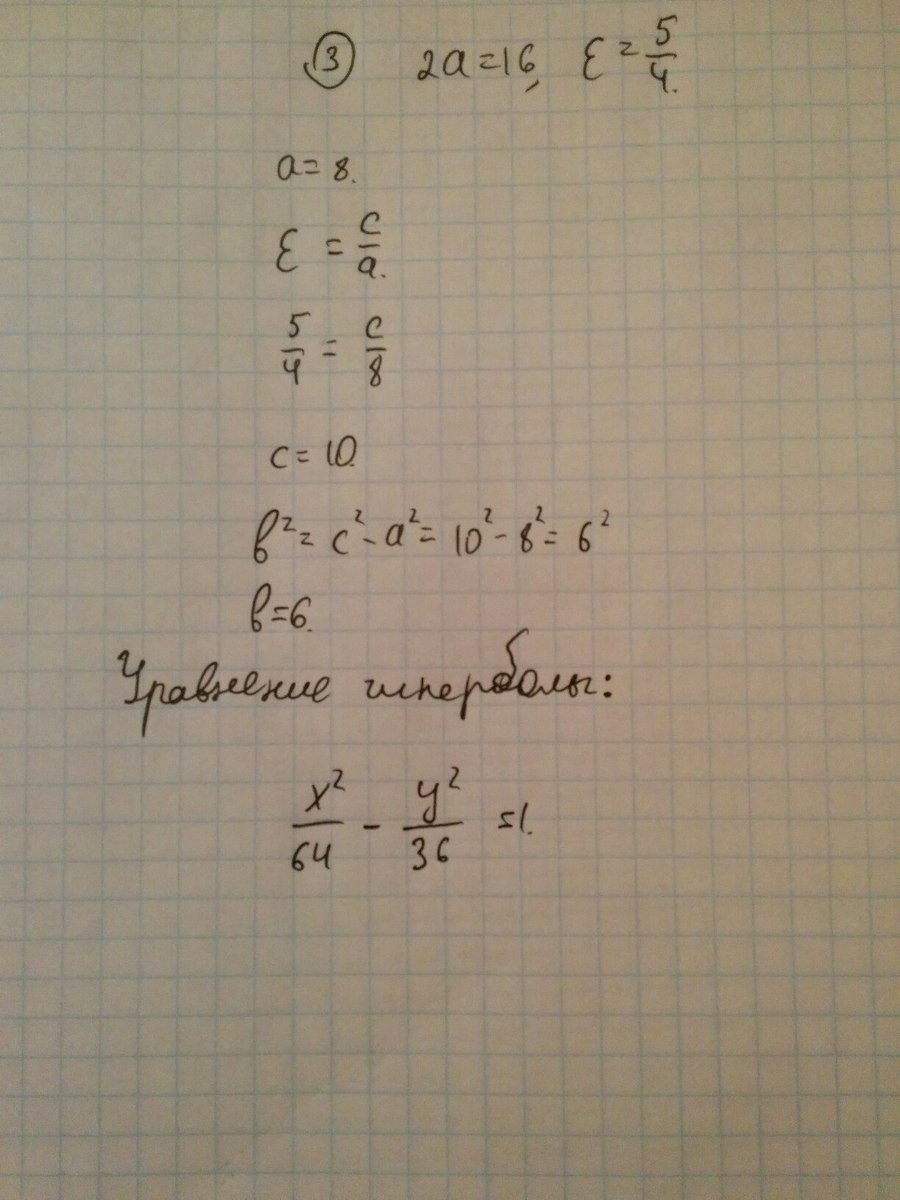 ③ 2a=16, ε=5/4.
a=8.
ε = c/a.
5/4 = c/8
c=10.
b²=c²-a²=10²-8²=6²
b=6.
Уравнение гиперболы:
x²/64 - y²/36 =1.